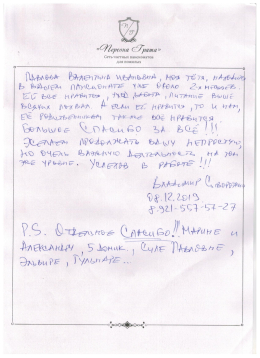 «Персона Грата»
Сеть частных пансионатов
для пожилых
Павлова Валентина Ивановна, моя тётя, находится
в вашем пансионате уже около 2х месяцев.
Ей всё нравится, уход, забота, питание выше
всяких похвал. А если ей нравится, то и нам,
её родственникам также всё нравится.
Большое Спасибо за всё!!!
Желаем продолжать вашу непростую,
но очень важную деятельность на том
же уровне. Успехов в работе!!!
Владимир
08.12.2019
8-921-557-57-27
P.S. Отдельное Спасибо!!! Марине и
Александру, 5 домик, Павловне,
Эльвире, Гульнаре..